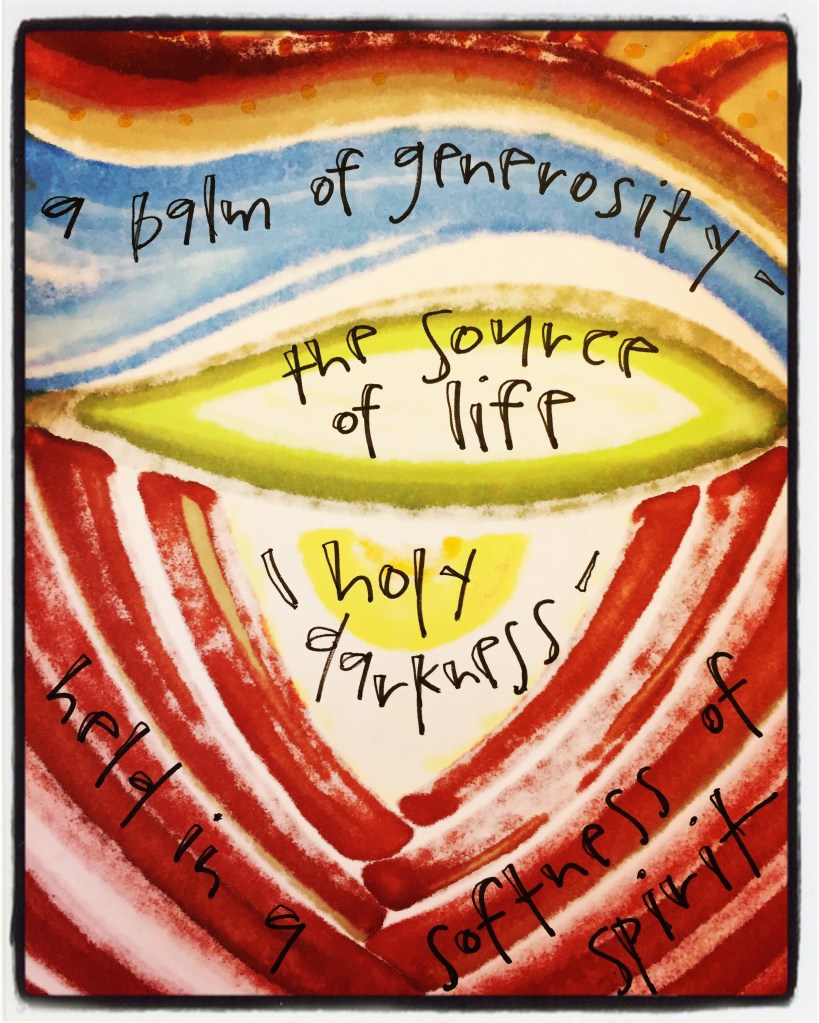 a balm of generosity -
the source
of life
holy
darkness
held in a
softness of
spirit